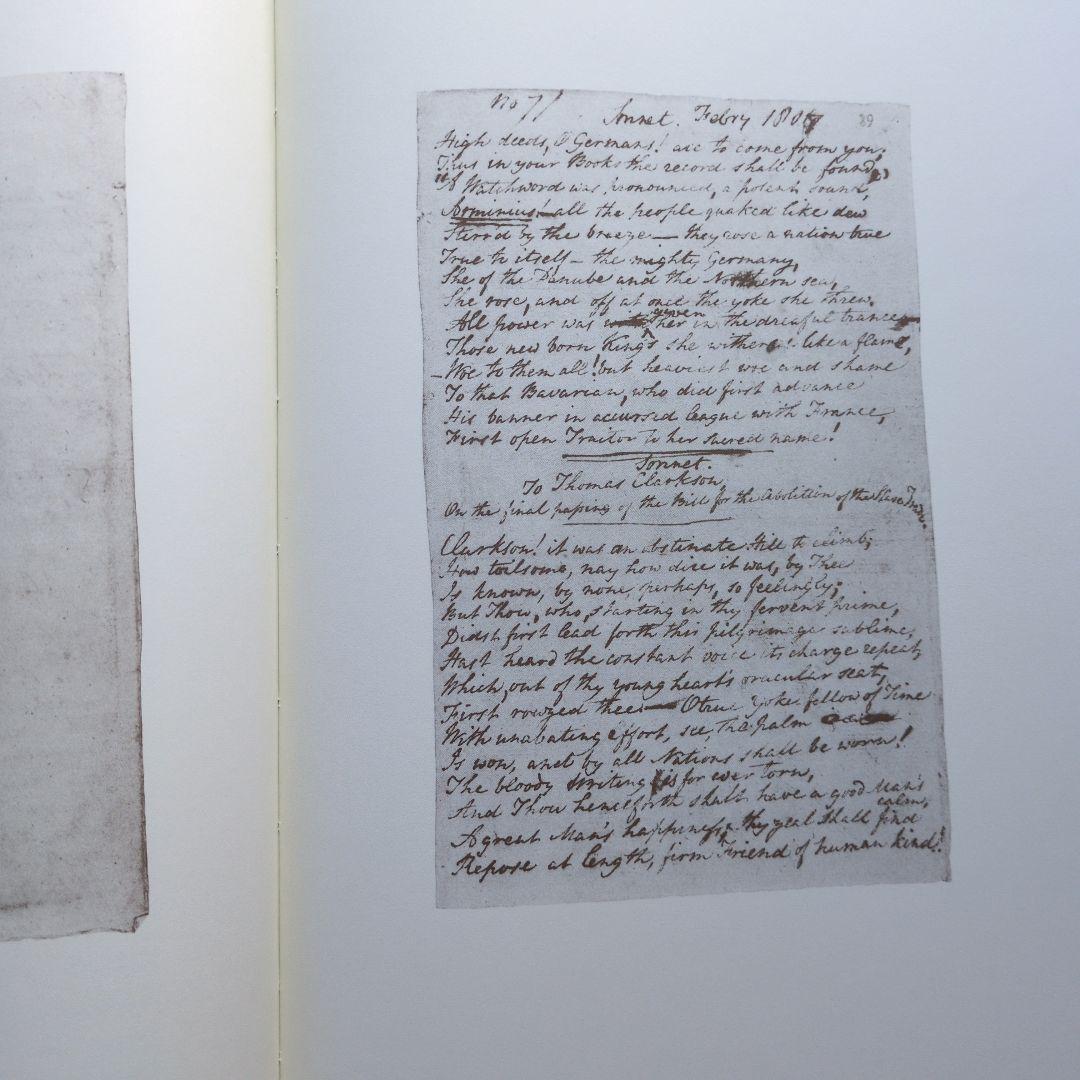 No 7/ Sonnet. Febry 1807 29
High deeds, O Germans! are to come from you;
Thus in your Books the record shall be found,
"A Watchword was pronounced, a potent sound,
Arminius!—all the people quaked like dew
Stirr'd by the breeze—they rose a nation true
True to itself—the mighty Germany,
She of the Danube and the Northern sea,
She rose, and off at once the yoke she threw.
All power was given her in the dreaful trance
Those new born Kings she wither'd like a flame,
—Woe to them all! but heaviest woe and shame
To that Bavarian, who did first advance
His banner in accursed league with France,
First open Traitor to her sacred name!
Sonnet.
To Thomas Clarkson,
On the final passing of the Bill for the Abolition of the Slave Trade.
Clarkson! it was an obstinate Hill to climb;
How toilsome, nay how dire it was, by Thee
Is known, by none, perhaps, so feelingly;
But Thou, who, starting in thy fervent prime,
Didst first lead forth this pilgrimage sublime,
Hast heard the constant voice its charge repeat,
Which, out of thy young heart's oracular seat,
First rowzed thee.— O true yoke fellow of Time
With unabating effort, see, the palm
Is won, and by all Nations shall be worn!
The bloody Writing is for ever torn,
And Thou henceforth shalt have a good Man's calm,
A great Man's happiness; thy zeal shall find
Repose at length, firm Friend of human kind!